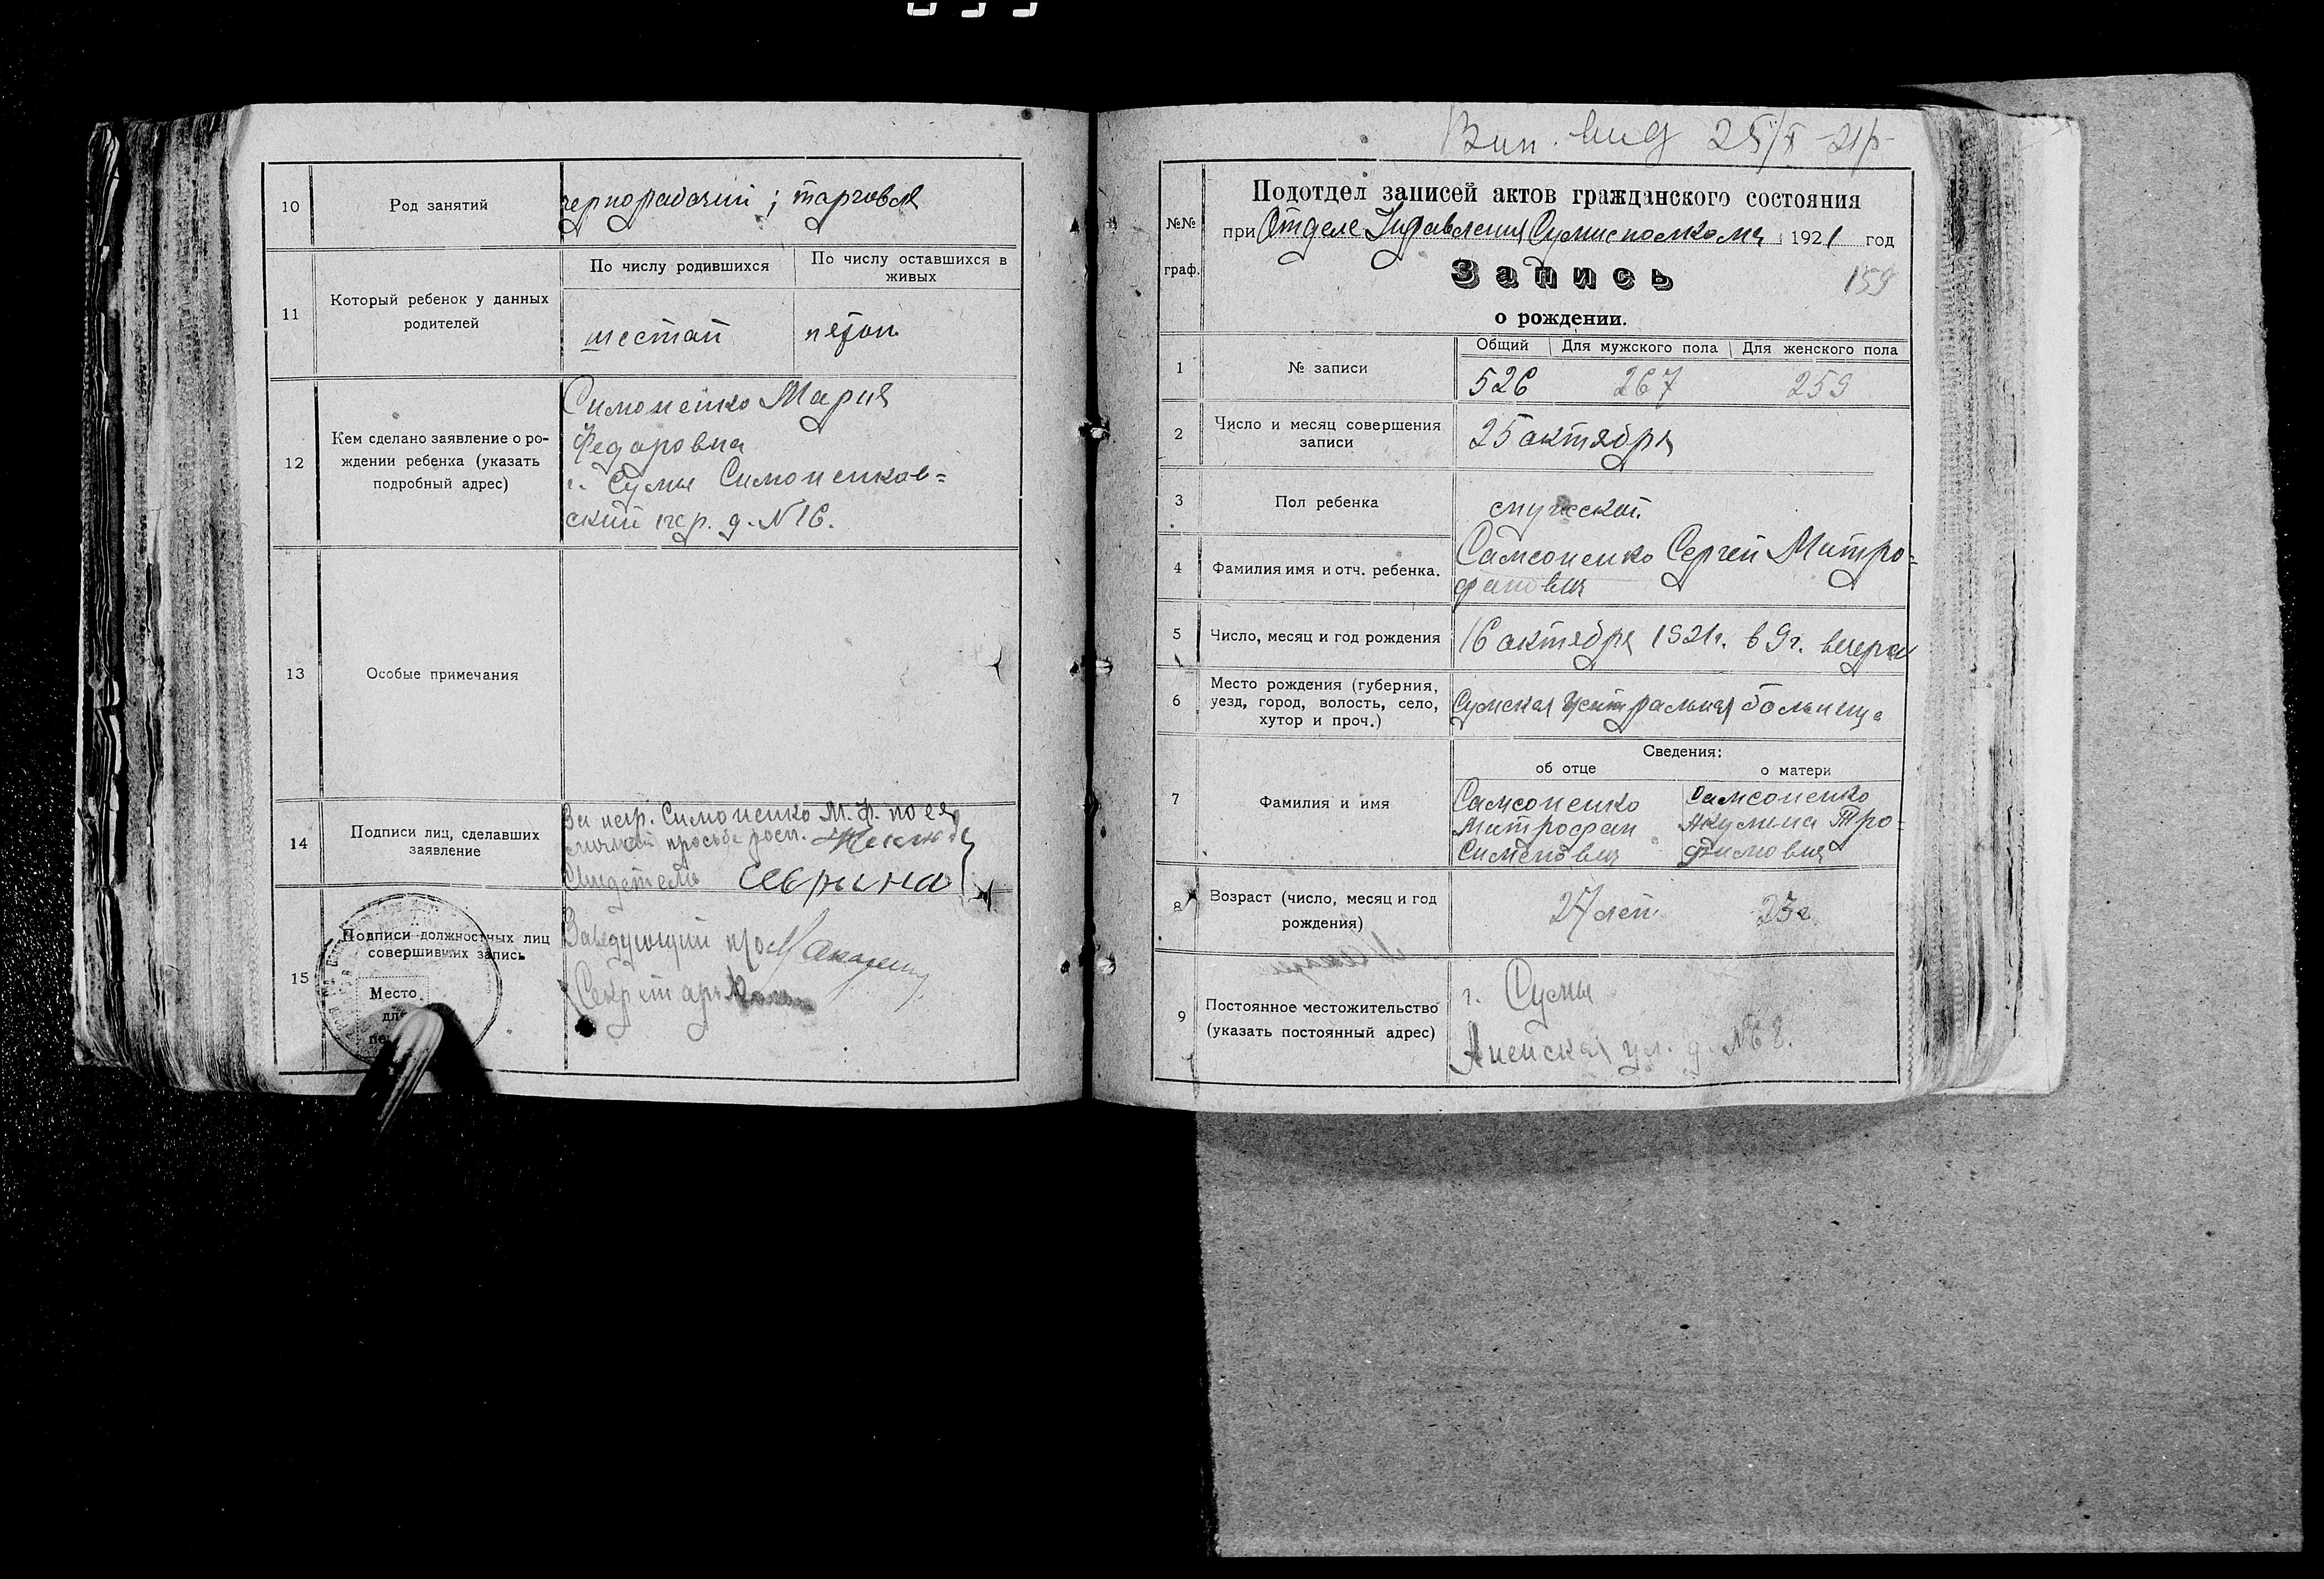 10
Род занятий
чернорабочий; торговля
11
Который ребенок у данных
родителей
По числу родившихся
По числу оставшихся в
живых
шестой
пятой
12
Кем сделано заявление о ро-
ждении ребенка (указать
подробный адрес)
Симоненко Мария
Федоровна
г. Сумы Симоненков=
ский пер. д. № 16.
13
Особые примечания
14
Подписи лиц, сделавших
заявление
За негр. Симоненко М. Ф. по ея
личной просьбе росп.
Свидетель
15
Подписи должностных лиц
совершивших запись
Место
для
Заведующий
Секретарь
Вип. вид 25/X 21р
№№
граф.
Подотдел записей актов гражданского состояния
при Отделе Управления Сумисполкома 1921 год
Запись
159
о рождении.
1
№ записи
Общий Для мужского пола Для женского пола
526 267 259
2
Число и месяц совершения
записи
25 октября
3
Пол ребенка
мужской
4
Фамилия имя и отч. ребенка.
Самсоненко Сергей Митро=
фанович
5
Число, месяц и год рождения
16 октября 1921г. в 9ч. вечера
6
Место рождения (губерния,
уезд, город, волость, село,
хутор и проч.)
Сумская Центральная больница
7
Фамилия и имя
Сведения:
об отце
о матери
Самсоненко
Митрофан
Самсоненко
Акулина Тро-
фимовна
8
Возраст (число, месяц и год
рождения)
27 лет
23 г.
9
Постоянное местожительство
(указать постоянный адрес)
г. Сумы
ул. д. № 8.